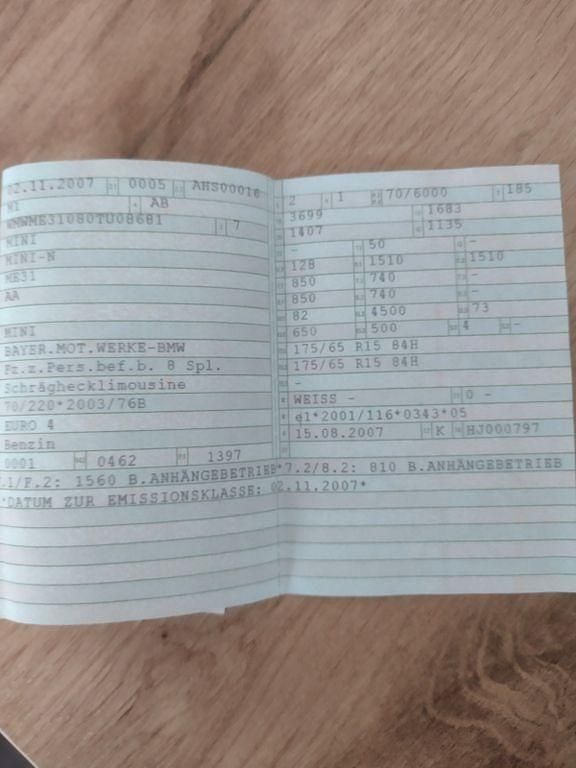 02.11.2007 0005 AHS00016
M1 AB
WMWME31080TU08681 7
MINI
MINI-N
ME31
AA
MINI
BAYER.MOT.WERKE-BMW
Fz.z.Pers.bef.b. 8 Spl.
Schräghecklimousine
70/220*2003/76B
EURO 4
Benzin
0001 0462 1397
2 1 70/6000 185
3699 1683
1407 1135
- 50 -
128 1510 1510
850 740 -
850 740 -
82 4500 73
650 500 4 -
175/65 R15 84H
175/65 R15 84H
-
WEISS - 0 -
e1*2001/116*0343*05
15.08.2007 K HJ000797
.1/F.2: 1560 B.ANHÄNGEBETRIEB*7.2/8.2: 810 B.ANHÄNGEBETRIEB
*DATUM ZUR EMISSIONSKLASSE: 02.11.2007*